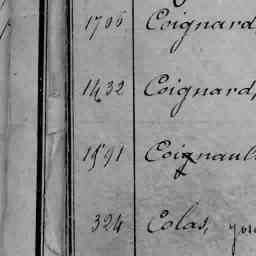 1706 Coignard,
1432 Coignard,
1591 Coignault
324 Colas,